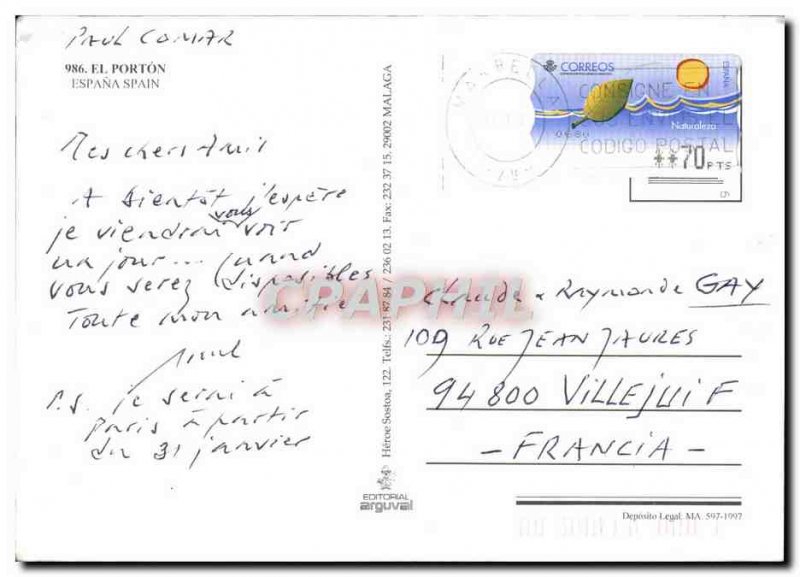 PAUL COMAR
986. EL PORTÓN
ESPAÑA SPAIN
Mes chers Amis
A Bientôt j'espère
je viendrai vous voir
un jour... quand
vous serez disponibles
Toute mon amitié
Paul
P.S. je serai à
Paris à partir
du 31 janvier
Héroe Sostoa, 122. Telfs.: 231 87 84 / 236 02 13. Fax: 232 37 15. 29002 MALAGA
EDITORIAL
arguval
CORREOS
ESPAÑA
Naturaleza
CONSIGNE EN
CODIGO POSTAL
**70 PTS
MARBELLA
CPAPHIL
Claude & Raymonde GAY
109 RUE JEAN JAURES
94800 VILLEJUIF
- FRANCIA -
Depósito Legal: MA. 597-1997